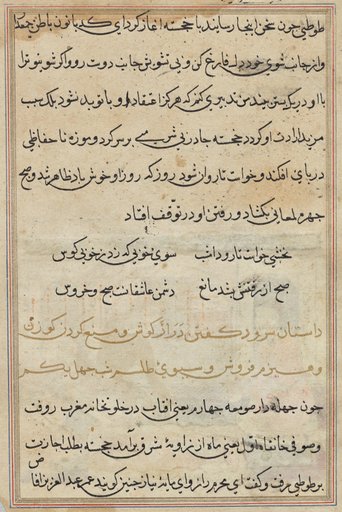 طوطی چون سخن اینجا رسانید با خجسته آغاز کرد ای کدبانو باطن جمع دار
و از جانب شوی خود دل فارغ کن و بی تشویش جانب دوست رو و اگر شوی تو ترا
با او در یک بستر بیند من تدبیری کنم که هرگز اعتقاد او با تو بد نشود بلک سبب
مزید ارادت او گردد خجسته چادر بی شرمی بر سر کرد و موزه ناحفاظی
در پای افکند و خواست تا روان شود روز که روز او خوش باد ظاهر شد و صبح
چهره لمعانی بگشاد و رفتن او در توقف افتاد
نخشبی خواست تا رود امشب سوی خوبی که زد ز خوبی کوس
صبح از رفتنش بشد مانع دشمن عاشقانست صبح و خروس
داستان سرود گفتن درازگوش و منع کردن گوزن
و هیزم فروش و سبوی طلسم شب چهل یکم
چون چهله دار صومعه چهارم یعنی آفتاب در خلوتخانه مغرب رفت
و صوفی خانقاه اول یعنی ماه از زاویه شرق برآمد خجسته بطلب اجازت
بر طوطی رفت و گفت ای محرم راز و ای مایه نیاز چنین گویند عمر عبد العزیز رض آقا